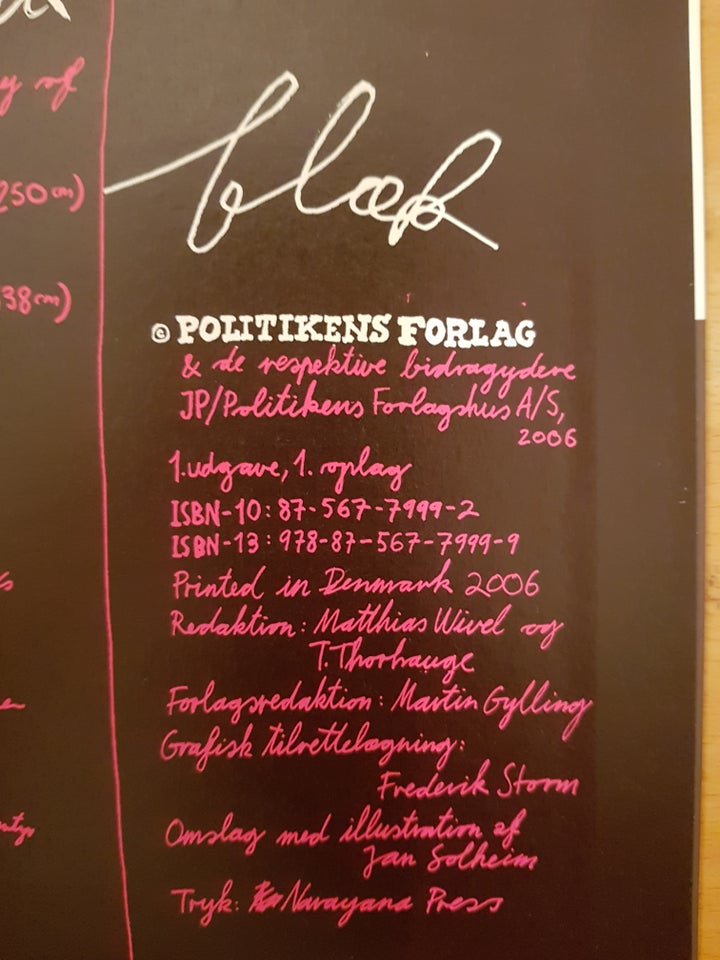 y of
250cm)
38cm)
blæk
© POLITIKENS FORLAG
& de respektive bidragydere
JP/Politikens Forlagshus A/S,
2006
1. udgave, 1. oplag
ISBN-10: 87-567-7999-2
ISBN-13: 978-87-567-7999-9
Printed in Denmark 2006
Redaktion: Matthias Wivel og
T. Thorhauge
Forlagsredaktion: Martin Gylling
Grafisk tilrettelægning:
Frederik Storm
Omslag med illustration af
Jan Solheim
Tryk: Narayana Press